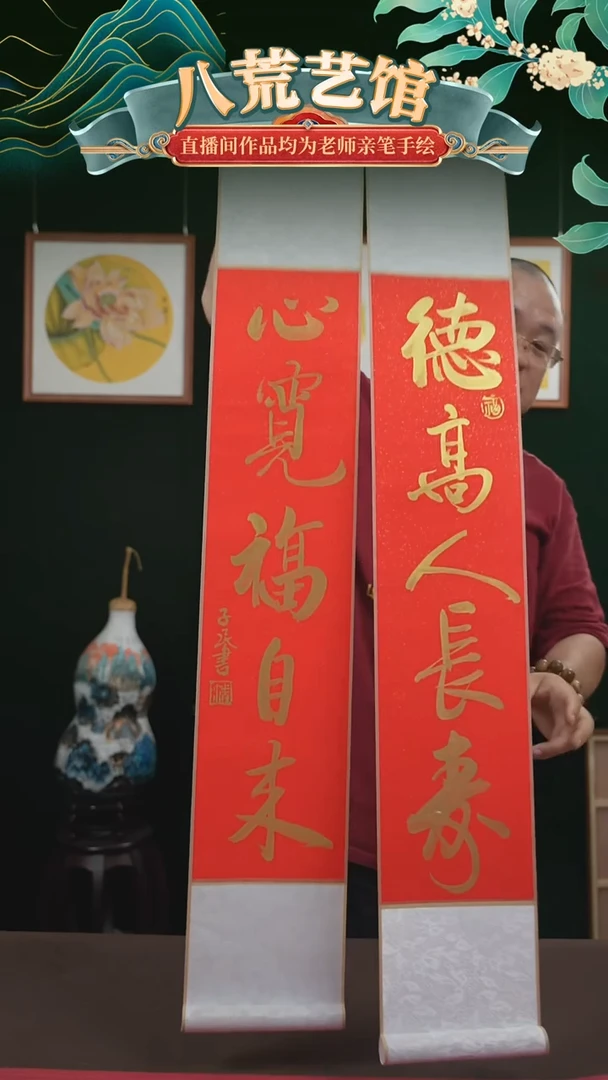 八荒艺馆
直播间作品均为老师亲笔手绘
德高人長寿
心寬福自来
子丞書
福